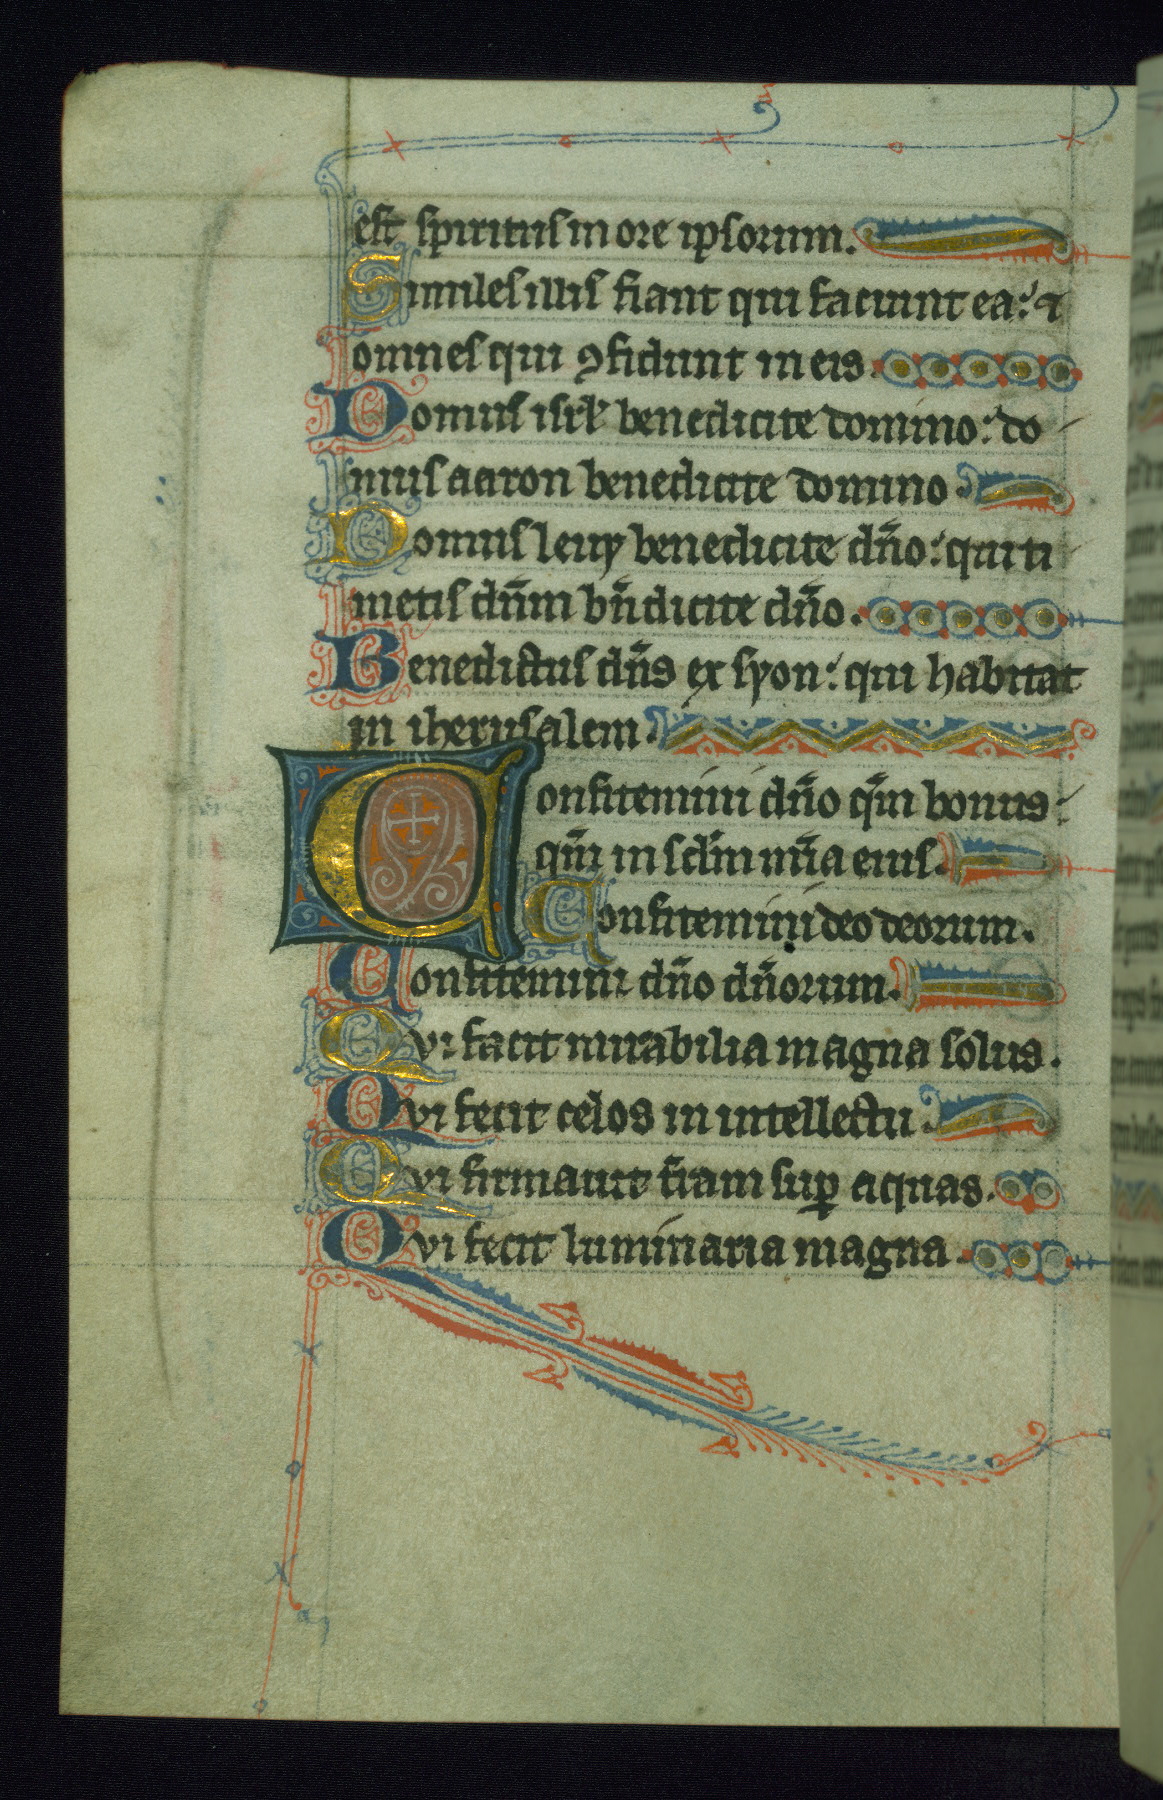 est spiritus in ore ipsorum.
Similes illis fiant qui faciunt ea: ⁊
omnes qui ꝯfidunt in eis.
Domus isrl̅ benedicite domino: do
mus aaron benedicite domino.
Domus leuy benedicite dn̅o: qui ti
metis dn̅m bn̅dicite dn̅o.
Benedictus dn̅s ex syon: qui habitat
in iherusalem.
Confitemini dn̅o qm̅ bonus:
qm̅ in sclm̅ mia̅ eius.
Confitemini deo deorum.
Confitemini dn̅o dn̅orum.
Qvi facit mirabilia magna solus.
Qvi fecit celos in intellectu.
Qvi firmauit t̅ram suꝑ aquas.
Qvi fecit luminaria magna.